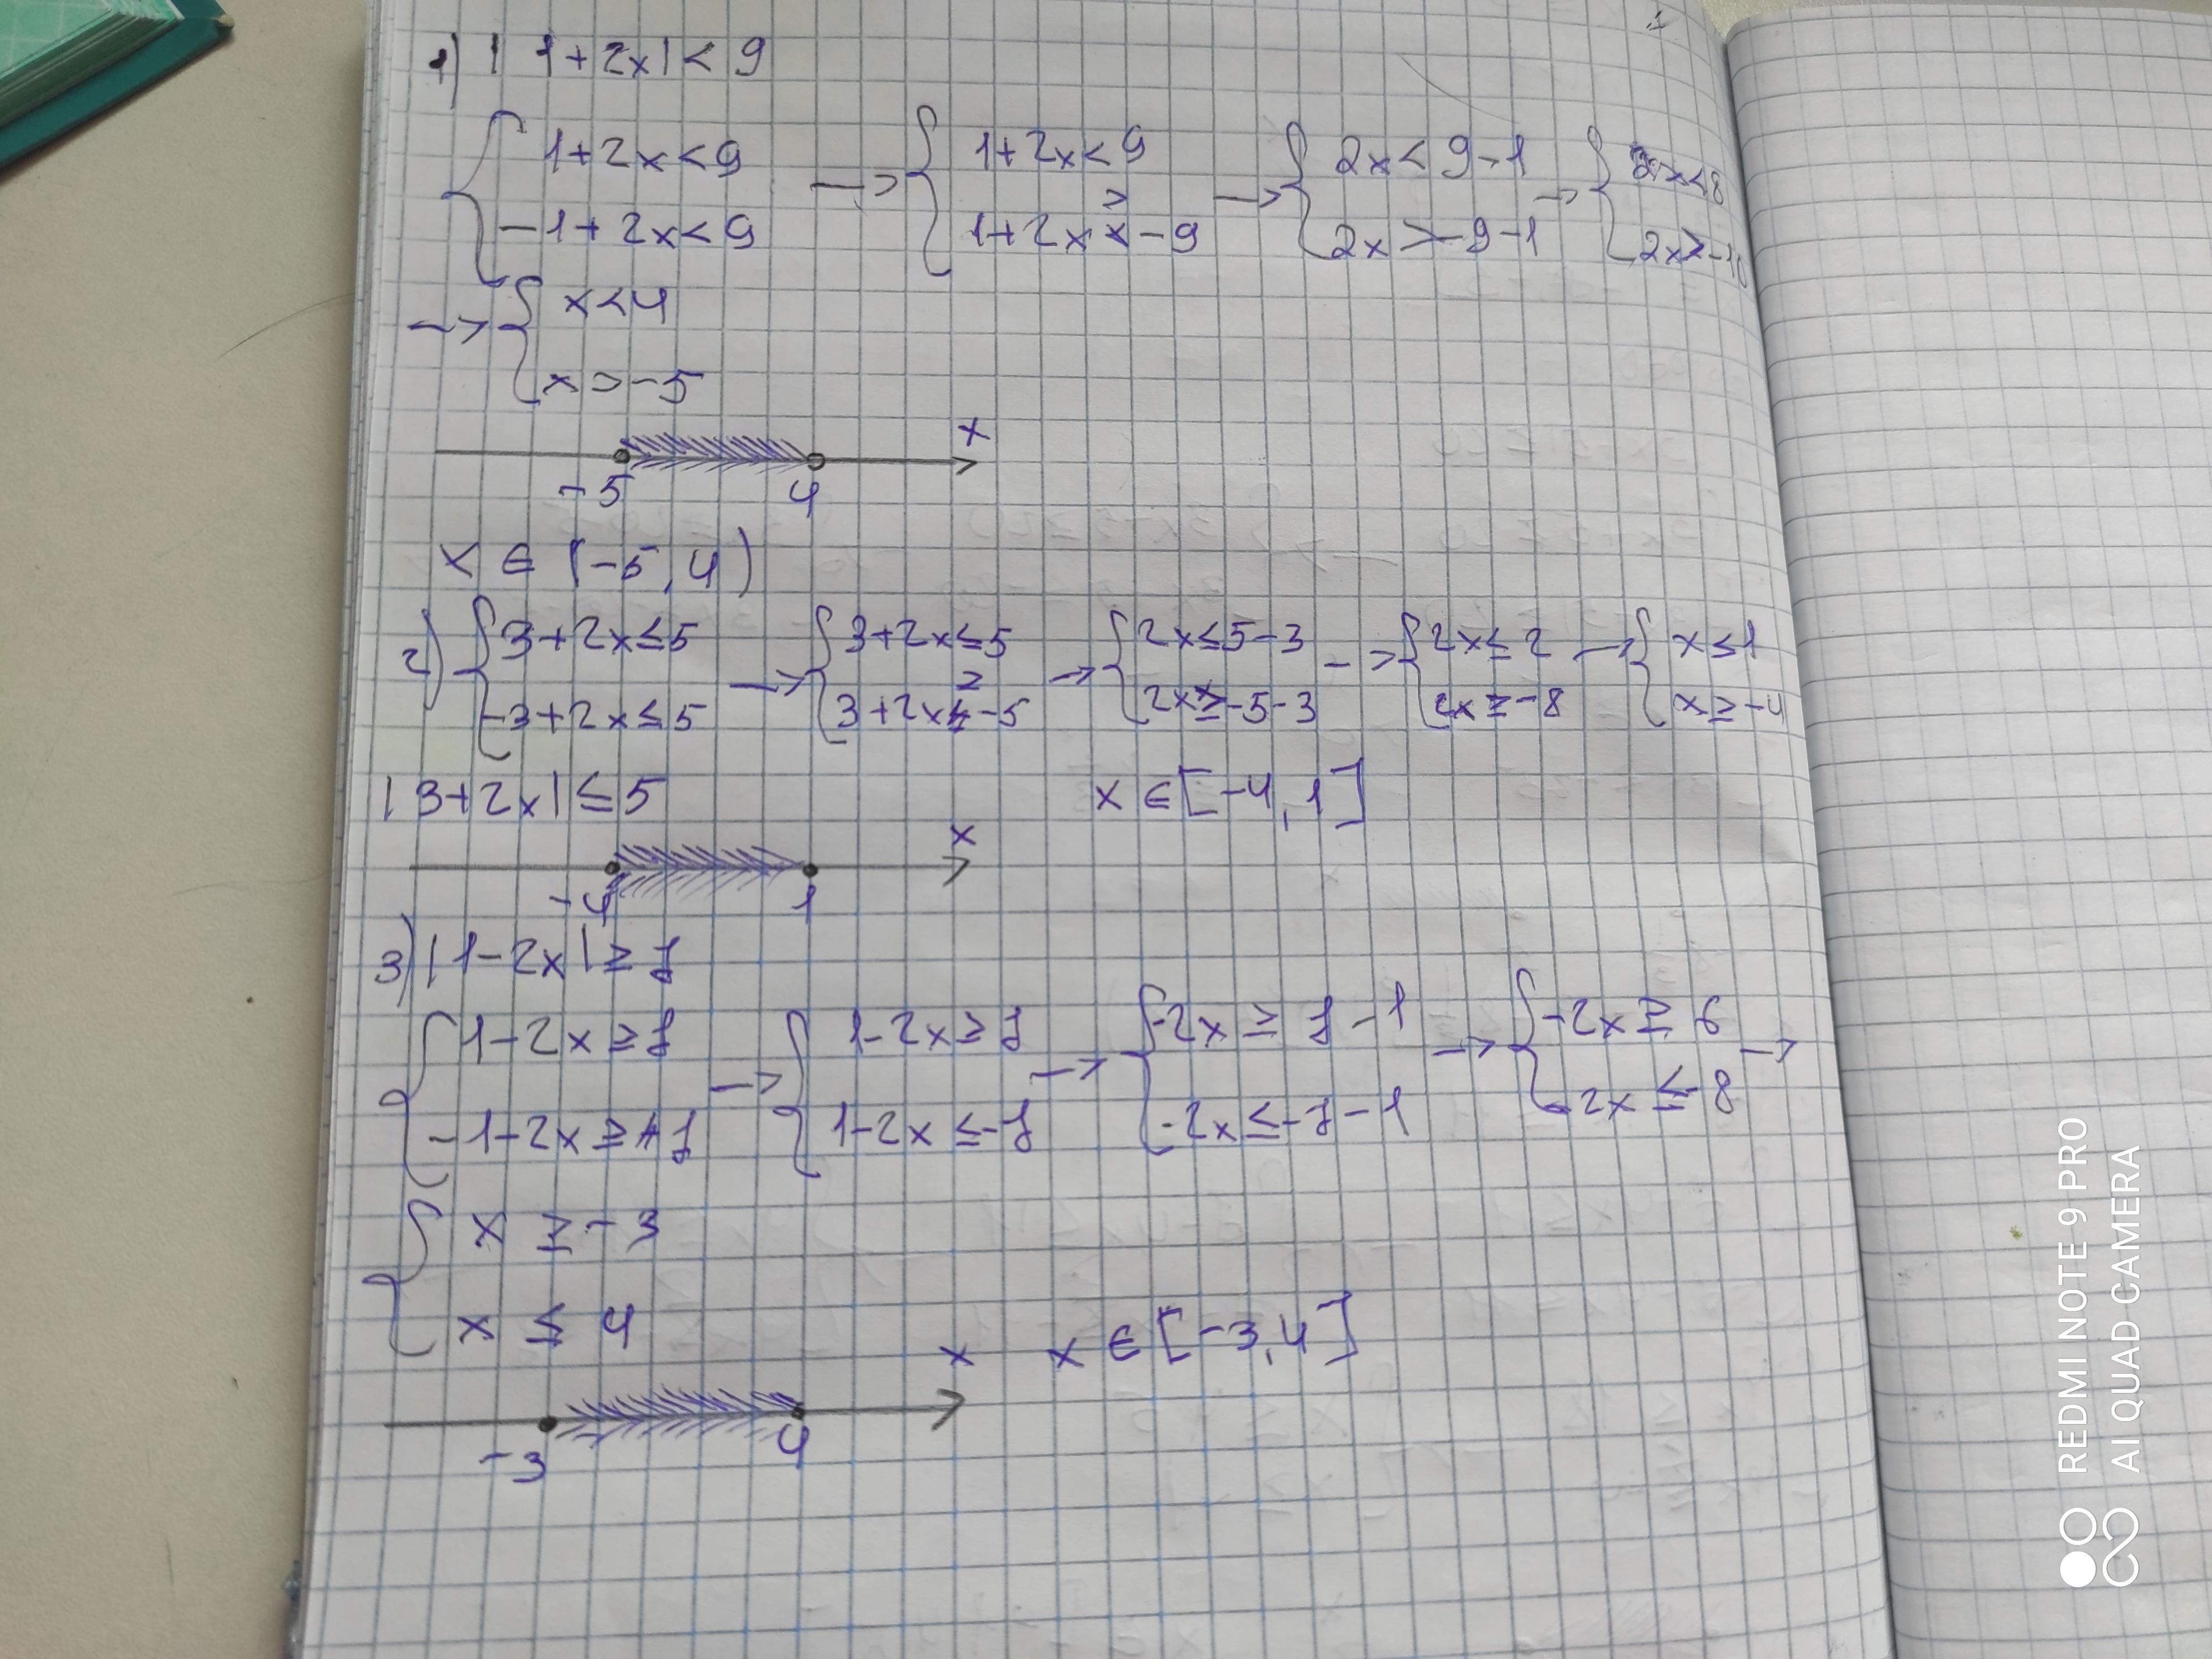 1) |1+2x|< 9
{ 1+2x<9 —> { 1+2x<9 —> { 2x< 9-1 —> { 2x<8
{ -1+2x<9 { 1+2x > -9 { 2x >-9-1 { 2x>-10
—> { x<4
{ x>-5
x
-5 4
x ∈ (-5,4)
2) { 3+2x≤5 —> { 3+2x≤5 —> { 2x≤5-3 —> { 2x≤2 —> { x≤1
{ -3+2x≤5 { 3+2x ≥ -5 { 2x≥-5-3 { 2x≥-8 { x≥-4
|3+2x|≤5 x ∈ [-4,1]
x
-4 1
3) |1-2x|≥7
{ 1-2x≥7 —> { 1-2x≥7 —> { -2x≥7-1 —> { -2x≥6 —>
{ -1-2x≥7 { 1-2x≤-7 { -2x≤-7-1 { -2x≤-8
{ x ≥-3
{ x ≤ 4
x x ∈ [-3,4]
-3 4
REDMI NOTE 9 PRO
AI QUAD CAMERA